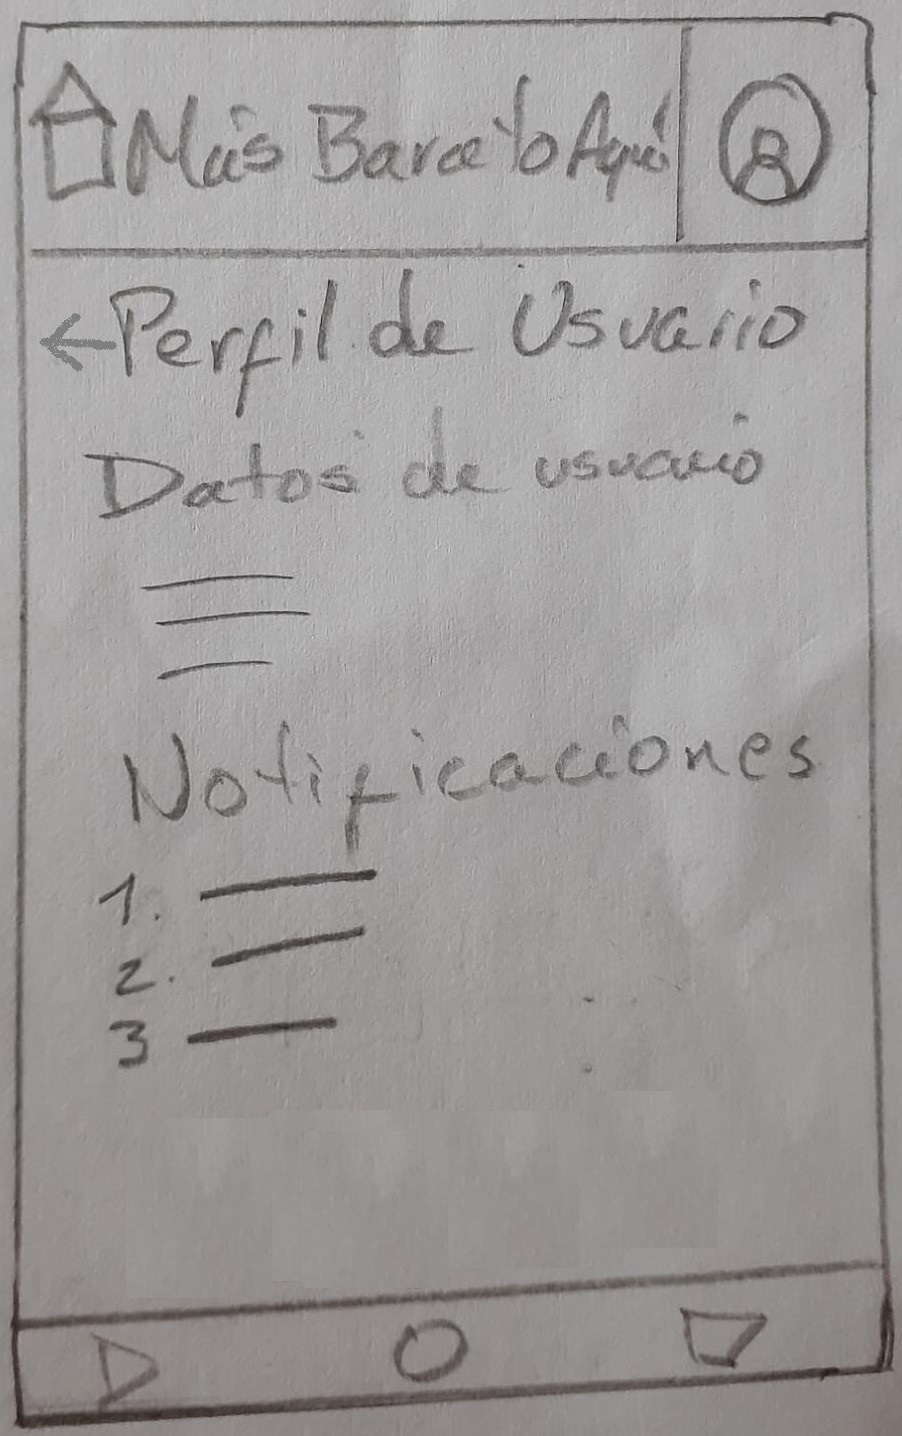 Más Barato Aquí
Perfil de Usuario
Datos de usuario
Notificaciones
1.
2.
3